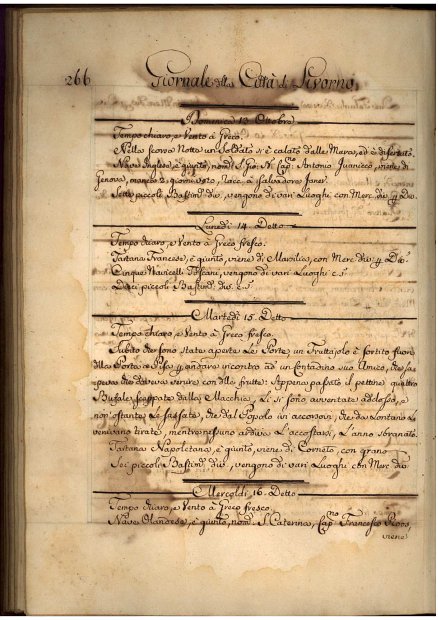 266 Giornale della Città di Livorno
Domenica 13 Ottobre
Tempo chiaro, e Vento à Greco.
Nella scorsa Notte un Soldato si è calato dalle Mura, ed è disertato.
Nave Inglese, è giunto, nom. S. Gio. N. Cap. Antonio, viene di
Genova, manca 2. giorni voto, Racc. à Salvadore
Sette piccoli Bastim. div. vengono di vari Luoghi con Merc. div. p. Div.
Lunedì 14. Detto
Tempo chiaro, e Vento à Greco fresco.
Tartana Francese, è giunto, viene di Marsilia, con Merc. div. p. Div.
Cinque Navicelli Toscani, vengono di vari Luoghi c. s.
Dieci piccoli Bastim. div. c. s.
Martedì 15. Detto
Tempo chiaro, e Vento à Greco fresco.
Subito che sono state aperte le Porte, un Fruttajolo è sortito fuori
della Porta a Pisa p. andare incontro ad un Contadino suo Amico, che sa=
peva che doveva venire con delle frutte: Appena passato il pettine quattro
Bufale, scappate dalla Macchia, li si sono avventate addosso, e
non'ostante le sassate, che dal Popolo in accorsovi, che da Lontano le
venivano tirate, mentre nessuno ardiva l'accostarsi, L'anno sbranato.
Tartana Napoletana, è giunto, viene di Corneto, con grano
Sei piccoli Bastim. div., vengono di vari Luoghi con Merc. div.
Mercoldì, 16. Detto
Tempo chiaro, e Vento à Greco fresco.
Nave Olandese, è giunto, nom. S. Caterina, Cap.no Francesco Roos,
viene